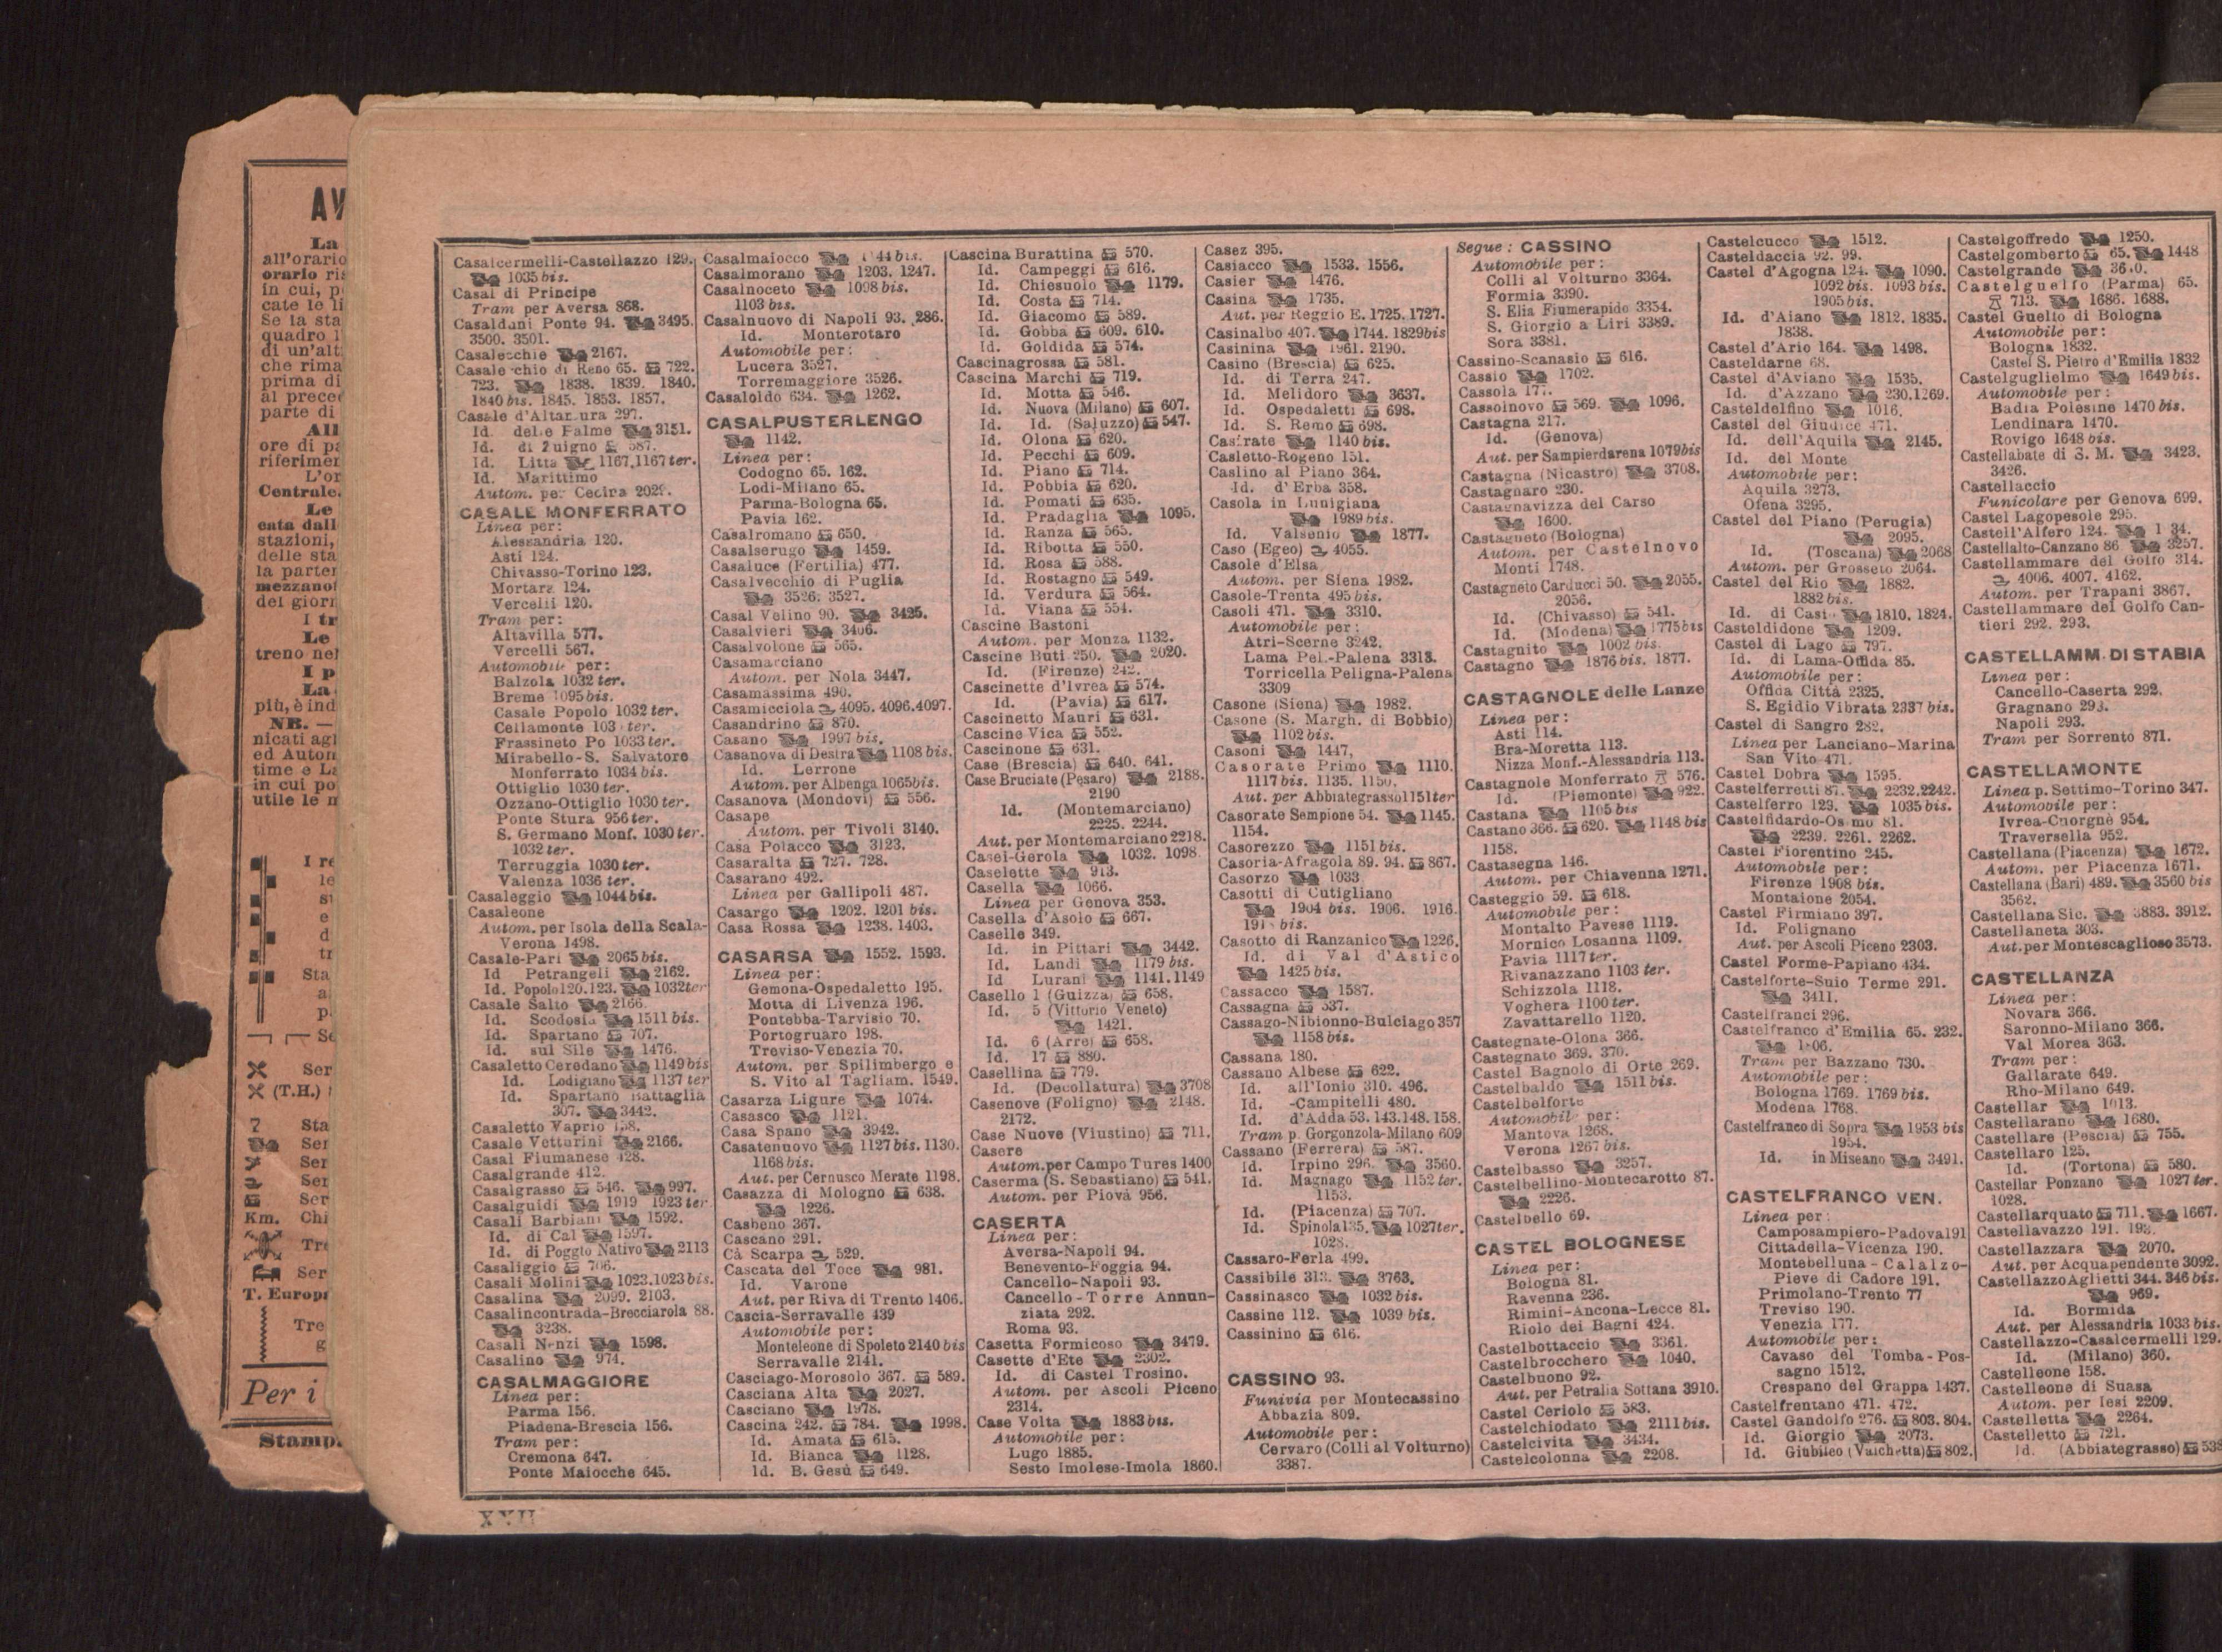 AV
La
all'orario
orario ris
in cui, p
cate le li
Se la sta
quadro l
di un'alt
che rima
prima di
al prece
parte di
All
ore di pa
riferimen
L'or
Centrale.
Le
cata dall
stazioni,
delle sta
la parten
mezzanot
del giorn
I tr
Le
treno nel
I p
La
più, è ind
NB. —
nicati agl
ed Auton
time e La
in cui po
utile le n
I re
le
st
e
d
tr
Sta
a
p
Se
Ser
(T.H.)
7 Sta
Ser
Ser
Ser
Ser
Km. Chi
Tre
Ser
T. Europ
Tre
g
Per i
Stamp.
Casalcermelli-Castellazzo 129.
1035 bis.
Casal di Principe
Tram per Aversa 868.
Casalduni Ponte 94. 3495.
3500. 3501.
Casalecchie 2167.
Casalecchio di Reno 65. 722.
723. 1838. 1839. 1840.
1840 bis. 1845. 1853. 1857.
Casale d'Altamura 297.
Id. delle Palme 3151.
Id. di 587.
Id. Litta 1167.1167 ter.
Id. Marittimo
Autom. per Cecina
CASALE MONFERRATO
Linea per:
Alessandria 120.
Asti 124.
Chivasso-Torino 123.
Mortara 124.
Vercelli 120.
Tram per:
Altavilla 577.
Vercelli 567.
Automobile per:
Balzola 1032 ter.
Breme 1095 bis.
Casale Popolo 1032 ter.
Cellamonte ter.
Frassineto Po 1033 ter.
Mirabello-S. Salvatore
Monferrato 1034 bis.
Ottiglio 1030 ter.
Ozzano-Ottiglio 1030 ter.
Ponte Stura 956 ter.
S. Germano Monf. 1030 ter.
1032 ter.
Terruggia 1030 ter.
Valenza 1036 ter.
Casaleggio 1044 bis.
Casaleone
Autom. per Isola della Scala-
Verona 1498.
Casale-Pari 2065 bis.
Id Petrangeli 2162.
Id. Popolo 120.123. 1032 ter
Casale Salto 2166.
Id. Scodosia 1511 bis.
Id. Spartano 707.
Id. sul Sile 1476.
Casaletto Ceredano 1149 bis
Id. Lodigiano 1137 ter
Id. Spartano Battaglia
307. 3442.
Casaletto Vaprio 158.
Casale Vetturini 2166.
Casal Fiumanese 428.
Casalgrande 412.
Casalgrasso 546. 997.
Casalguidi 1919 1923 ter
Casali Barbiani 1592.
Id. di Cal 1597.
Id. di Poggio Nativo 2113
Casaliggio 706.
Casali Molini 1023.1023 bis.
Casalina 2099. 2103.
Casalincontrada-Brecciarola 88.
3238.
Casali Nenzi 1598.
Casalino 974.
CASALMAGGIORE
Linea per:
Parma 156.
Piadena-Brescia 156.
Tram per:
Cremona 647.
Ponte Maiocche 645.
Casalmaiocco bis.
Casalmorano 1203. 1247.
Casalnoceto 1098 bis.
1103 bis.
Casalnuovo di Napoli 93. 286.
Id. Monterotaro
Automobile per:
Lucera 3527.
Torremaggiore 3526.
Casaloldo 634. 1262.
CASALPUSTERLENGO
1142.
Linea per:
Codogno 65. 162.
Lodi-Milano 65.
Parma-Bologna 65.
Pavia 162.
Casalromano 650.
Casalserugo 1459.
Casaluce (Fertilia) 477.
Casalvecchio di Puglia
3526. 3527.
Casal Velino 90. 3425.
Casalvieri 3406.
Casalvolone 565.
Casamarciano
Autom. per Nola 3447.
Casamassima 490.
Casamicciola 4095. 4096.4097.
Casandrino 870.
Casano 1997 bis.
Casanova di Destra 1108 bis.
Id. Lerrone
Autom. per Albenga 1065 bis.
Casanova (Mondovì) 556.
Casape
Autom. per Tivoli 3140.
Casa Polacco 3123.
Casaralta 727. 728.
Casarano 492.
Linea per Gallipoli 487.
Casargo 1202. 1201 bis.
Casa Rossa 1238. 1403.
CASARSA 1552. 1593.
Linea per:
Gemona-Ospedaletto 195.
Motta di Livenza 196.
Pontebba-Tarvisio 70.
Portogruaro 198.
Treviso-Venezia 70.
Autom. per Spilimbergo e
S. Vito al Tagliam. 1549.
Casarza Ligure 1074.
Casasco 1121.
Casa Spano 3942.
Casatenuovo 1127 bis. 1130.
1168 bis.
Aut. per Cernusco Merate 1198.
Casazza di Mologno 638.
1226.
Casbeno 367.
Cascano 291.
Cà Scarpa 529.
Cascata del Toce 981.
Id. Varone
Aut. per Riva di Trento 1406.
Cascia-Serravalle 439
Automobile per:
Monteleone di Spoleto 2140 bis
Serravalle 2141.
Casciago-Morosolo 367. 589.
Casciana Alta 2027.
Casciano 1978.
Cascina 242. 784. 1998.
Id. Amata 615.
Id. Bianca 1128.
Id. B. Gesù 649.
Cascina Burattina 570.
Id. Campeggi 616.
Id. Chiesuolo 1179.
Id. Costa 714.
Id. Giacomo 589.
Id. Gobba 609. 610.
Id. Goldida 574.
Cascinagrossa 581.
Cascina Marchi 719.
Id. Motta 546.
Id. Nuova (Milano) 607.
Id. Id. (Saluzzo) 547.
Id. Olona 620.
Id. Pecchi 609.
Id. Piano 714.
Id. Pobbia 620.
Id. Pomati 635.
Id. Pradaglia 1095.
Id. Ranza 565.
Id. Ribotta 550.
Id. Rosa 588.
Id. Rostagno 549.
Id. Verdura 564.
Id. Viana 554.
Cascine Bastoni
Autom. per Monza 1132.
Cascine Buti 250. 2020.
Id. (Firenze) 242.
Cascinette d'Ivrea 574.
Id. (Pavia) 617.
Cascinetto Mauri 631.
Cascine Vica 552.
Cascinone 631.
Case (Brescia) 640. 641.
Case Bruciate (Pesaro) 2188.
2190
Id. (Montemarciano)
2225. 2244.
Aut. per Montemarciano 2218.
Casei-Gerola 1032. 1098
Caselette 913.
Casella 1066.
Linea per Genova 353.
Casella d'Asolo 667.
Caselle 349.
Id. in Pittari 3442.
Id. Landi 1179 bis.
Id Lurani 1141.1149
Casello 1 (Guizza) 658.
Id. 5 (Vittorio Veneto)
1421.
Id. 6 (Arre) 658.
Id. 17 880.
Casellina 779.
Id. (Decollatura) 3708
Casenove (Foligno) 2148.
2172.
Case Nuove (Viustino) 711.
Casere
Autom. per Campo Tures 1400
Caserma (S. Sebastiano) 541.
Autom. per Piovà 956.
CASERTA
Linea per:
Aversa-Napoli 94.
Benevento-Foggia 94.
Cancello-Napoli 93.
Cancello-Torre Annun-
ziata 292.
Roma 93.
Casetta Formicoso 3479.
Casette d'Ete 2302.
Id. di Castel Trosino.
Autom. per Ascoli Piceno
2314.
Case Volta 1883 bis.
Automobile per:
Lugo 1885.
Sesto Imolese-Imola 1860.
Casez 395.
Casiacco 1533. 1556.
Casier 1476.
Casina 1735.
Aut. per Reggio E. 1725. 1727.
Casinalbo 407. 1744. 1829 bis
Casinina 1961. 2190.
Casino (Brescia) 625.
Id. di Terra 247.
Id. Melidoro 3637.
Id. Ospedaletti 698.
Id. S. Remo 698.
Casirate 1140 bis.
Casletto-Rogeno 151.
Caslino al Piano 364.
Id. d'Erba 358.
Casola in Lunigiana
1989 bis.
Id. Valsenio 1877.
Caso (Egeo) 4055.
Casole d'Elsa
Autom. per Siena 1982.
Casole-Trenta 495 bis.
Casoli 471. 3310.
Automobile per:
Atri-Scerne 3242.
Lama Pel.-Palena 3313.
Torricella Peligna-Palena
3309
Casone (Siena) 1982.
Casone (S. Margh. di Bobbio)
1102 bis.
Casoni 1447.
Casorate Primo 1110.
1117 bis. 1135. 1150.
Aut. per Abbiategrasso 1151 ter
Casorate Sempione 54. 1145.
1154.
Casorezzo 1151 bis.
Casoria-Afragola 89. 94. 867.
Casorzo 1033
Casotti di Cutigliano
1904 bis. 1906. 1916.
bis.
Casotto di Ranzanico 1226.
Id. di Val d'Astico
1425 bis.
Cassacco 1587.
Cassagna 537.
Cassago-Nibionno-Bulciago 357
1158 bis.
Cassana 180.
Cassano Albese 622.
Id. all'Ionio 310. 496.
Id. -Campitelli 480.
Id. d'Adda 53. 143. 148. 158.
Tram p. Gorgonzola-Milano 609
Cassano (Ferrera) 587.
Id. Irpino 296. 3560.
Id. Magnago 1152 ter.
1153.
Id. (Piacenza) 707.
Id. Spinola 135. 1027 ter.
1028.
Cassaro-Ferla 499.
Cassibile 313. 3763.
Cassinasco 1032 bis.
Cassine 112. 1039 bis.
Cassinino 616.
CASSINO 93.
Funivia per Montecassino
Abbazia 809.
Automobile per:
Cervaro (Colli al Volturno)
3387.
Segue: CASSINO
Automobile per:
Colli al Volturno 3364.
Formia 3390.
S. Elia Fiumerapido 3354.
S. Giorgio a Liri 3389.
Sora 3381.
Cassino-Scanasio 616.
Cassio 1702.
Cassola 177.
Cassolnovo 569. 1096.
Castagna 217.
Id. (Genova)
Aut. per Sampierdarena 1079 bis
Castagna (Nicastro) 3708.
Castagnaro 230.
Castagnavizza del Carso
1600.
Castagneto (Bologna)
Autom. per Castelnovo
Monti 1748.
Castagneto Carducci 50. 2055.
2056.
Id. (Chivasso) 541.
Id. (Modena) 1775 bis
Castagnito 1002 bis.
Castagno 1876 bis. 1877.
CASTAGNOLE delle Lanze
Linea per:
Asti 114.
Bra-Moretta 113.
Nizza Monf.-Alessandria 113.
Castagnole Monferrato 576.
Id. (Piemonte) 922.
Castana 1105 bis
Castano 366. 620. 1148 bis
1158.
Castasegna 146.
Autom. per Chiavenna 1271.
Casteggio 59. 618.
Automobile per:
Montalto Pavese 1119.
Mornico Losanna 1109.
Pavia 1117 ter.
Rivanazzano 1103 ter.
Schizzola 1118.
Voghera 1100 ter.
Zavattarello 1120.
Castegnate-Olona 366.
Castegnato 369. 370.
Castel Bagnolo di Orte 269.
Castelbaldo 1511 bis.
Castelbelforte
Automobile per:
Mantova 1268.
Verona 1267 bis.
Castelbasso 3257.
Castelbellino-Montecarotto 87.
2226.
Castelbello 69.
CASTEL BOLOGNESE
Linea per:
Bologna 81.
Ravenna 236.
Rimini-Ancona-Lecce 81.
Riolo dei Bagni 424.
Castelbottaccio 3361.
Castelbrocchero 1040.
Castelbuono 92.
Aut. per Petralia Sottana 3910.
Castel Ceriolo 583.
Castelchiodato 2111 bis.
Castelcivita 3434.
Castelcolonna 2208.
Castelcucco 1512.
Casteldaccia 92. 99.
Castel d'Agogna 124. 1090.
1092 bis. 1093 bis.
1905 bis.
Id. d'Aiano 1812. 1835.
1838.
Castel d'Ario 164. 1498.
Casteldarne 68.
Castel d'Aviano 1535.
Id. d'Azzano 230.1269.
Casteldelfino 1016.
Castel del Giudice 471.
Id. dell'Aquila 2145.
Id. del Monte
Automobile per:
Aquila 3273.
Ofena 3295.
Castel del Piano (Perugia)
2095.
Id. (Toscana) 2068
Autom. per Grosseto 2064.
Castel del Rio 1882.
1882 bis.
Id. di Casio 1810. 1824.
Casteldidone 1209.
Castel di Lago 797.
Id. di Lama-Offida 85.
Automobile per:
Offida Città 2325.
S. Egidio Vibrata 2337 bis.
Castel di Sangro 282.
Linea per Lanciano-Marina
San Vito 471.
Castel Dobra 1595.
Castelferretti 87. 2232.2242.
Castelferro 129. 1035 bis.
Castelfidardo-Osimo 81.
2239. 2261. 2262.
Castel Fiorentino 245.
Automobile per:
Firenze 1908 bis.
Montaione 2054.
Castel Firmiano 397.
Id. Folignano
Aut. per Ascoli Piceno 2303.
Castel Forme-Papiano 434.
Castelforte-Suio Terme 291.
3411.
Castelfranci 296.
Castelfranco d'Emilia 65. 232.
Tram per Bazzano 730.
Automobile per:
Bologna 1769. 1769 bis.
Modena 1768.
Castelfranco di Sopra 1953 bis
1954.
Id. in Miscano 3491.
CASTELFRANCO VEN.
Linea per:
Camposampiero-Padova 191
Cittadella-Vicenza 190.
Montebelluna-Calalzo-
Pieve di Cadore 191.
Primolano-Trento 77
Treviso 190.
Venezia 177.
Automobile per:
Cavaso del Tomba-Pos-
sagno 1512.
Crespano del Grappa 1437.
Castelfrentano 471. 472.
Castel Gandolfo 276. 803. 804.
Id. Giorgio 2073.
Id. Giubileo (Valchetta) 802.
Castelgoffredo 1250.
Castelgomberto 65. 1448
Castelgrande
Castelguelfo (Parma) 65.
713. 1686. 1688.
Castel Guelfo di Bologna
Automobile per:
Bologna 1832.
Castel S. Pietro d'Emilia 1832
Castelguglielmo 1649 bis.
Automobile per:
Badia Polesine 1470 bis.
Lendinara 1470.
Rovigo 1648 bis.
Castellabate di S. M. 3423.
3426.
Castellaccio
Funicolare per Genova 699.
Castel Lagopesole 295.
Castell'Alfero 124.
Castellalto-Canzano 86 3257.
Castellammare del Golfo 314.
4006. 4007. 4162.
Autom. per Trapani 3867.
Castellammare del Golfo Can-
tieri 292. 293.
CASTELLAMM. DI STABIA
Linea per:
Cancello-Caserta 292.
Gragnano 293.
Napoli 293.
Tram per Sorrento 871.
CASTELLAMONTE
Linea p. Settimo-Torino 347.
Automobile per:
Ivrea-Cuorgnè 954.
Traversella 952.
Castellana (Piacenza) 1672.
Autom. per Piacenza 1671.
Castellana (Bari) 489. 3560 bis
3562.
Castellana Sic. 3883. 3912.
Castellaneta 303.
Aut. per Montescaglioso 3573.
CASTELLANZA
Linea per:
Novara 366.
Saronno-Milano 366.
Val Morea 363.
Tram per:
Gallarate 649.
Rho-Milano 649.
Castellar 1013.
Castellarano 1680.
Castellare (Pescia) 755.
Castellaro 125.
Id. (Tortona) 580.
Castellar Ponzano 1027 ter.
1028.
Castellarquato 711. 1667.
Castellavazzo 191. 193.
Castellazzara 2070.
Aut. per Acquapendente 3092.
Castellazzo Aglietti 344. 346 bis.
969.
Id. Bormida
Aut. per Alessandria 1033 bis.
Castellazzo-Casalcermelli 129.
Id. (Milano) 360.
Castelleone 158.
Castelleone di Suasa
Autom. per Iesi 2209.
Castelletta 2264.
Castelletto 721.
Id. (Abbiategrasso) 538
XXII